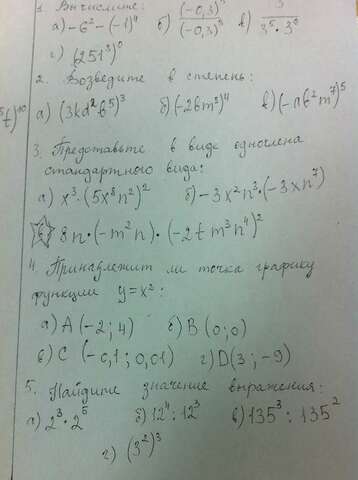 1. Вычислите:
а) -6² - (-1)⁴ б) (-0,3) / (-0,3) в) / 3⁵ · 3
г) (251³)⁰
2. Возведите в степень:
а) (3kd²b⁵)³ б) (-2bm³)⁴ в) (-nb²m⁷)⁵
3. Представьте в виде одночлена
стандартного вида:
а) x³ · (5x⁸n²)² б) -3x²n³ · (-3xn⁷)
8n · (-m²n) · (-2tm³n⁴)²
4. Принадлежит ли точка графику
функции y = x²:
а) A (-2; 4) б) B (0; 0)
в) C (-0,1; 0,01) г) D(3; -9)
5. Найдите значение выражения:
а) 2³ · 2⁵ б) 12⁴ : 12³ в) 135³ : 135²
г) (3²)³